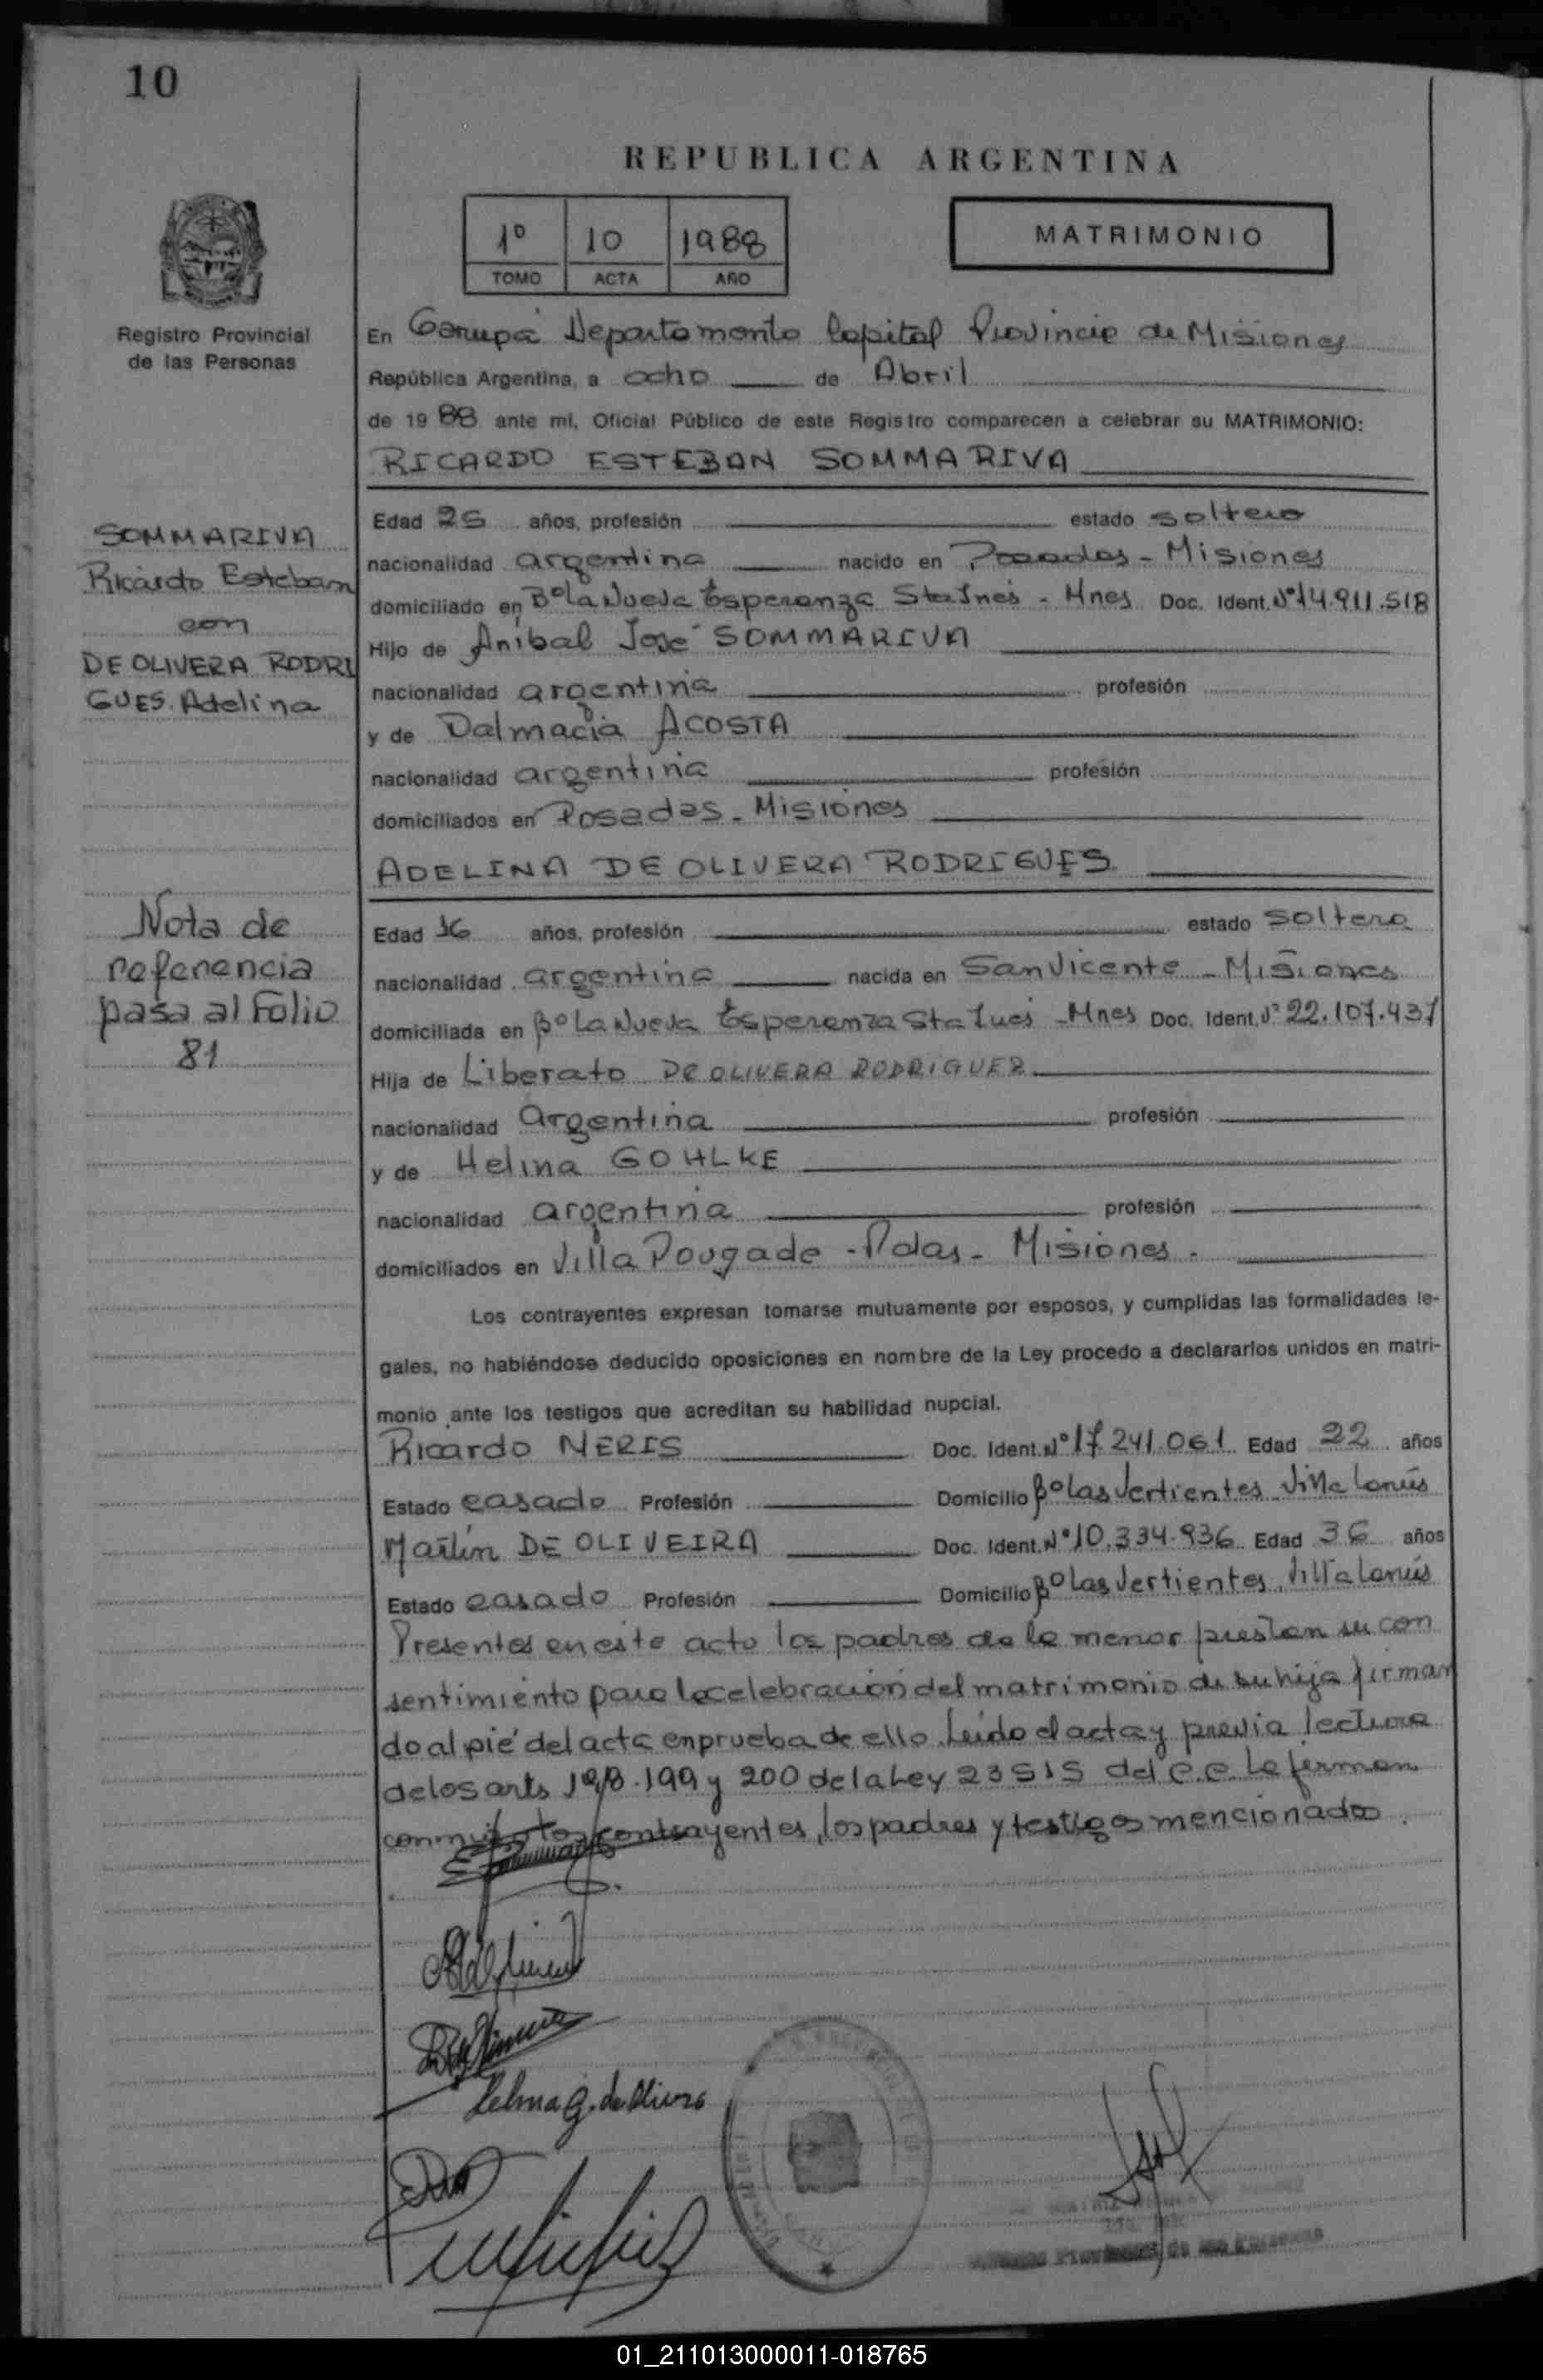 10
REPUBLICA ARGENTINA
1º 10 1988
TOMO ACTA AÑO
MATRIMONIO
Registro Provincial
de las Personas
En Garupá Departamento Capital Provincia de Misiones
República Argentina, a ocho de Abril
de 1988 ante mí, Oficial Público de este Registro comparecen a celebrar su MATRIMONIO:
RICARDO ESTEBAN SOMMARIVA
SOMMARIVA
Ricardo Esteban
con
DE OLIVERA RODRI
GUES. Adelina
Edad 25 años, profesión estado soltero
nacionalidad argentina nacido en Posadas - Misiones
domiciliado en Bº La Nueva Esperanza Sta Inés - Mnes Doc. Ident. Nº 14.911.518
Hijo de Aníbal José SOMMARIVA
nacionalidad argentina profesión
y de Dalmacia ACOSTA
nacionalidad argentina profesión
domiciliados en Posadas - Misiones
ADELINA DE OLIVERA RODRIGUES
Nota de
referencia
pasa al Folio
81
Edad 16 años, profesión estado soltera
nacionalidad argentina nacida en San Vicente - Misiones
domiciliada en Bº La Nueva Esperanza Sta Inés - Mnes Doc. Ident. Nº 22.107.437
Hija de Liberato DE OLIVERA RODRIGUEZ
nacionalidad argentina profesión
y de Helina GOHLKE
nacionalidad argentina profesión
domiciliados en Villa Pougade - Pdas - Misiones.
Los contrayentes expresan tomarse mutuamente por esposos, y cumplidas las formalidades le-
gales, no habiéndose deducido oposiciones en nombre de la Ley procedo a declararlos unidos en matri-
monio ante los testigos que acreditan su habilidad nupcial.
Ricardo NERIS Doc. Ident. Nº 17.241.061 Edad 22 años
Estado casado Profesión Domicilio Bº Las Vertientes Villa Lanús
Martín DE OLIVEIRA Doc. Ident. Nº 10.334.936 Edad 36 años
Estado casado Profesión Domicilio Bº Las Vertientes, Villa Lanús
Presentes en este acto los padres de la menor prestan su con
sentimiento para la celebración del matrimonio de su hija firman
do al pié del acta en prueba de ello. Leído el acta y previa lectura
de los arts 198.199 y 200 de la Ley 23515 del C.C. la firman
conmigo los contrayentes, los padres y testigos mencionados.
Helma G. de Olivera
01_211013000011-018765